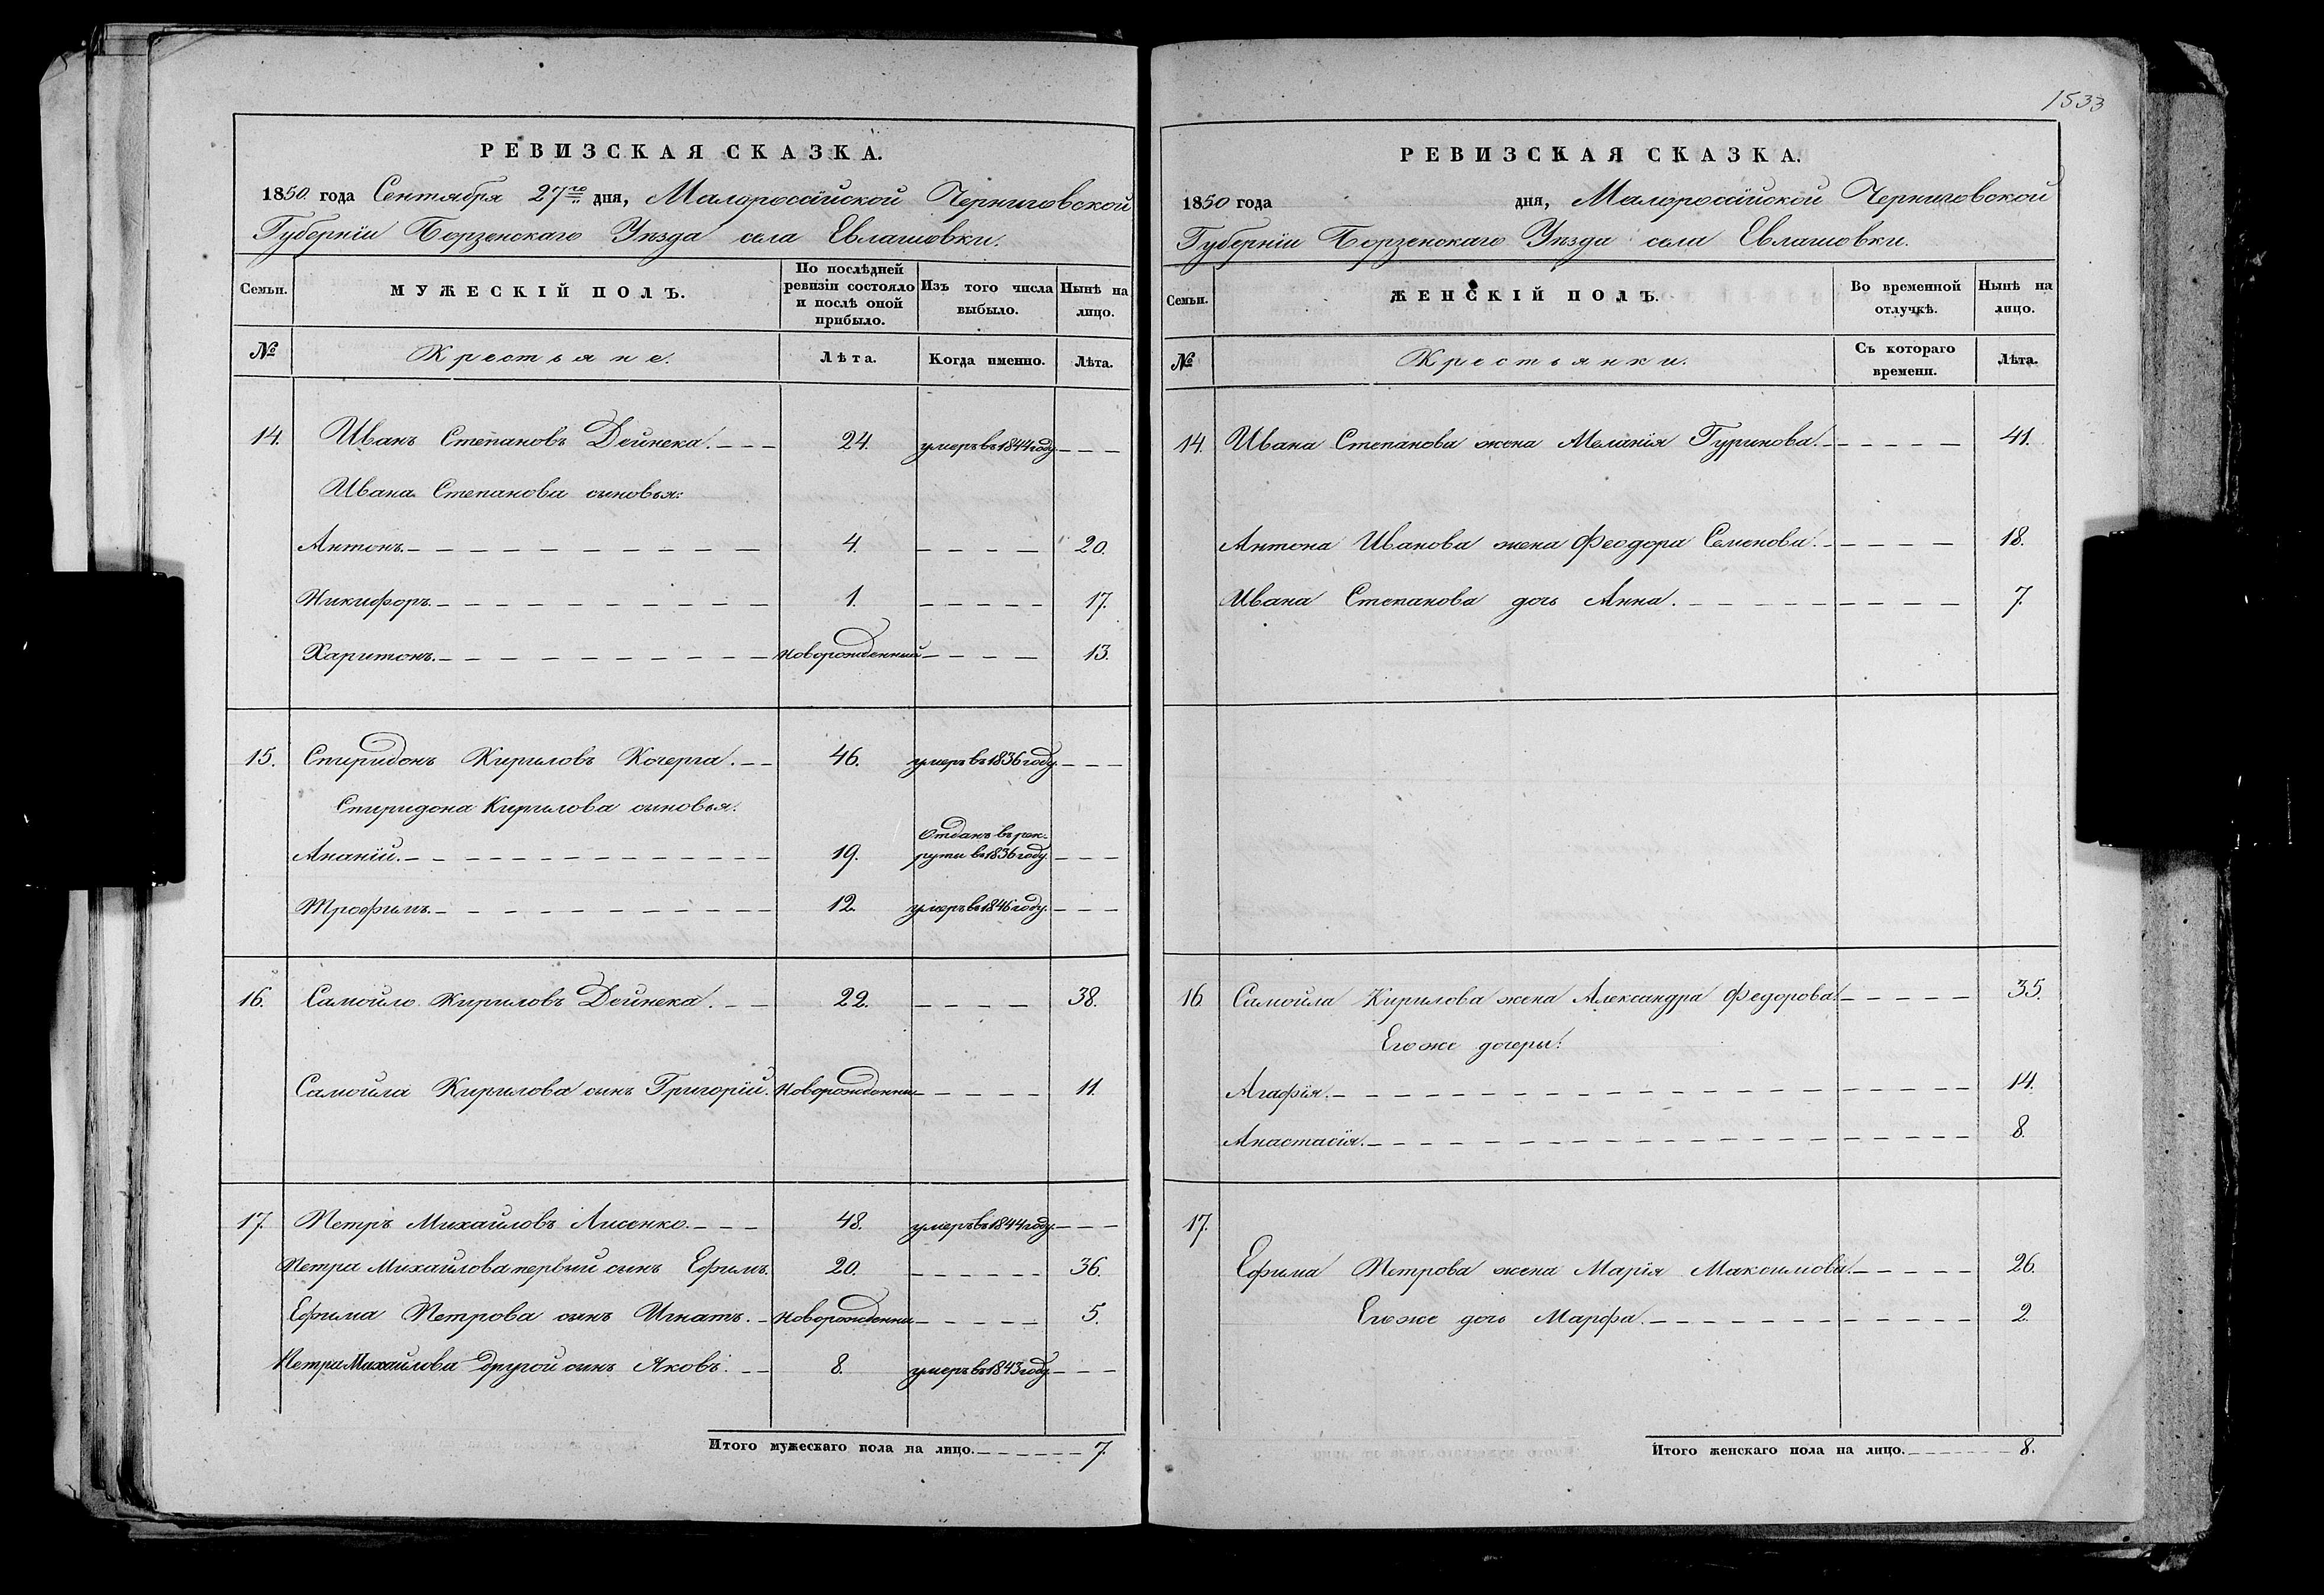 РЕВИЗСКАЯ СКАЗКА.
1850 года Сентября 27го дня, Малороссійской Черниговской
Губерніи Борзенскаго Уѣзда села Евлашовки.
Семьи. МУЖЕСКІЙ ПОЛЪ. По послѣдней ревизіи состояло и послѣ оной прибыло. Изъ того числа выбыло. Нынѣ на лицо.
№ Крестьяне. Лѣта. Когда именно. Лѣта.
14. Иванъ Степановъ Дейнека. 24. умеръ въ 1844 году.
Ивана Степанова сыновья:
Антонъ. 4. 20.
Никифоръ. 1. 17.
Харитонъ. новорожденный 13.
15. Спиридонъ Кириловъ Кочерга. 46. умеръ въ 1836 году.
Спиридона Кирилова сыновья.
Ананій. 19. Отданъ въ рек-
рути въ 1836 году.
Трофимъ. 12. умеръ въ 1846 году.
16. Самойло Кириловъ Дейнека. 22. 38.
Самойла Кирилова сынъ Григорій. Новорожденны 11.
17. Петръ Михайловъ Лисенко. 48. умеръ въ 1844 году.
Петра Михайлова первый сынъ Ефимъ. 20. 36.
Ефима Петрова сынъ Игнатъ. новорожденны 5.
Петра Михайлова другой сынъ Яковъ. 8. умеръ въ 1843 году.
Итого мужескаго пола на лицо. 7.
1533
РЕВИЗСКАЯ СКАЗКА.
1850 года дня, Малороссійской Черниговской
Губерніи Борзенскаго Уѣзда села Евлашовки.
Семьи. ЖЕНСКІЙ ПОЛЪ. Во временной отлучкѣ. Нынѣ на лицо.
№ Крестьянки. Съ котораго времени. Лѣта.
14. Ивана Степанова жена Меланія Гуринова. 41.
Антона Иванова жена Феодора Семенова. 18.
Ивана Степанова дочь Анна. 7.
16. Самойла Кирилова жена Александра Федорова. 35.
Его же дочеры:
Агафія. 14.
Анастасія. 8.
17.
Ефима Петрова жена Марія Максимова. 26.
Его же дочь Марфа. 2.
Итого женскаго пола на лицо. 8.